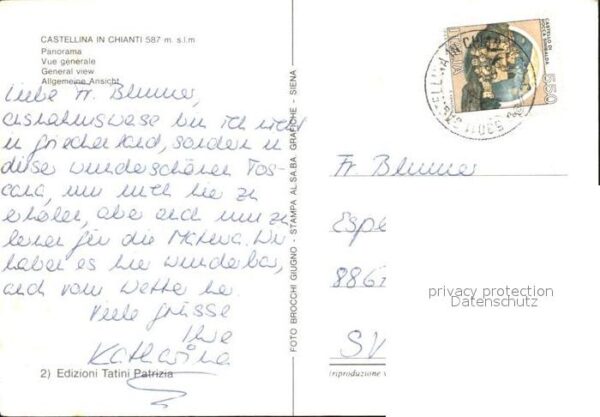 CASTELLINA IN CHIANTI 587 m. s.l.m
Panorama
Vue generale
General view
Allgemeine Ansicht
Liebe Fr. Blumer,
ausnahmsweise bin ich nicht
in Griechenland, sondern in
dieser wunderschönen Tos-
cana, um mich hie zu
erholen, aber auch um zu
lernen für die Matura. Wir
haben es hie wunderbar,
auch vom Wetter he.
Viele Grüsse
Ihre
Katharina
2) Edizioni Tatini Patrizia
FOTO BROCCHI GIUGNO - STAMPA AL.SA.BA. GRAFICHE - SIENA
CASTELLO DI
ROCCA SINIBALDA
550
ITALIA
CASTELLINA IN CHIANTI
53011
Fr. Blumer
Espe
8867
SV
(riproduzione v
privacy protection
Datenschutz